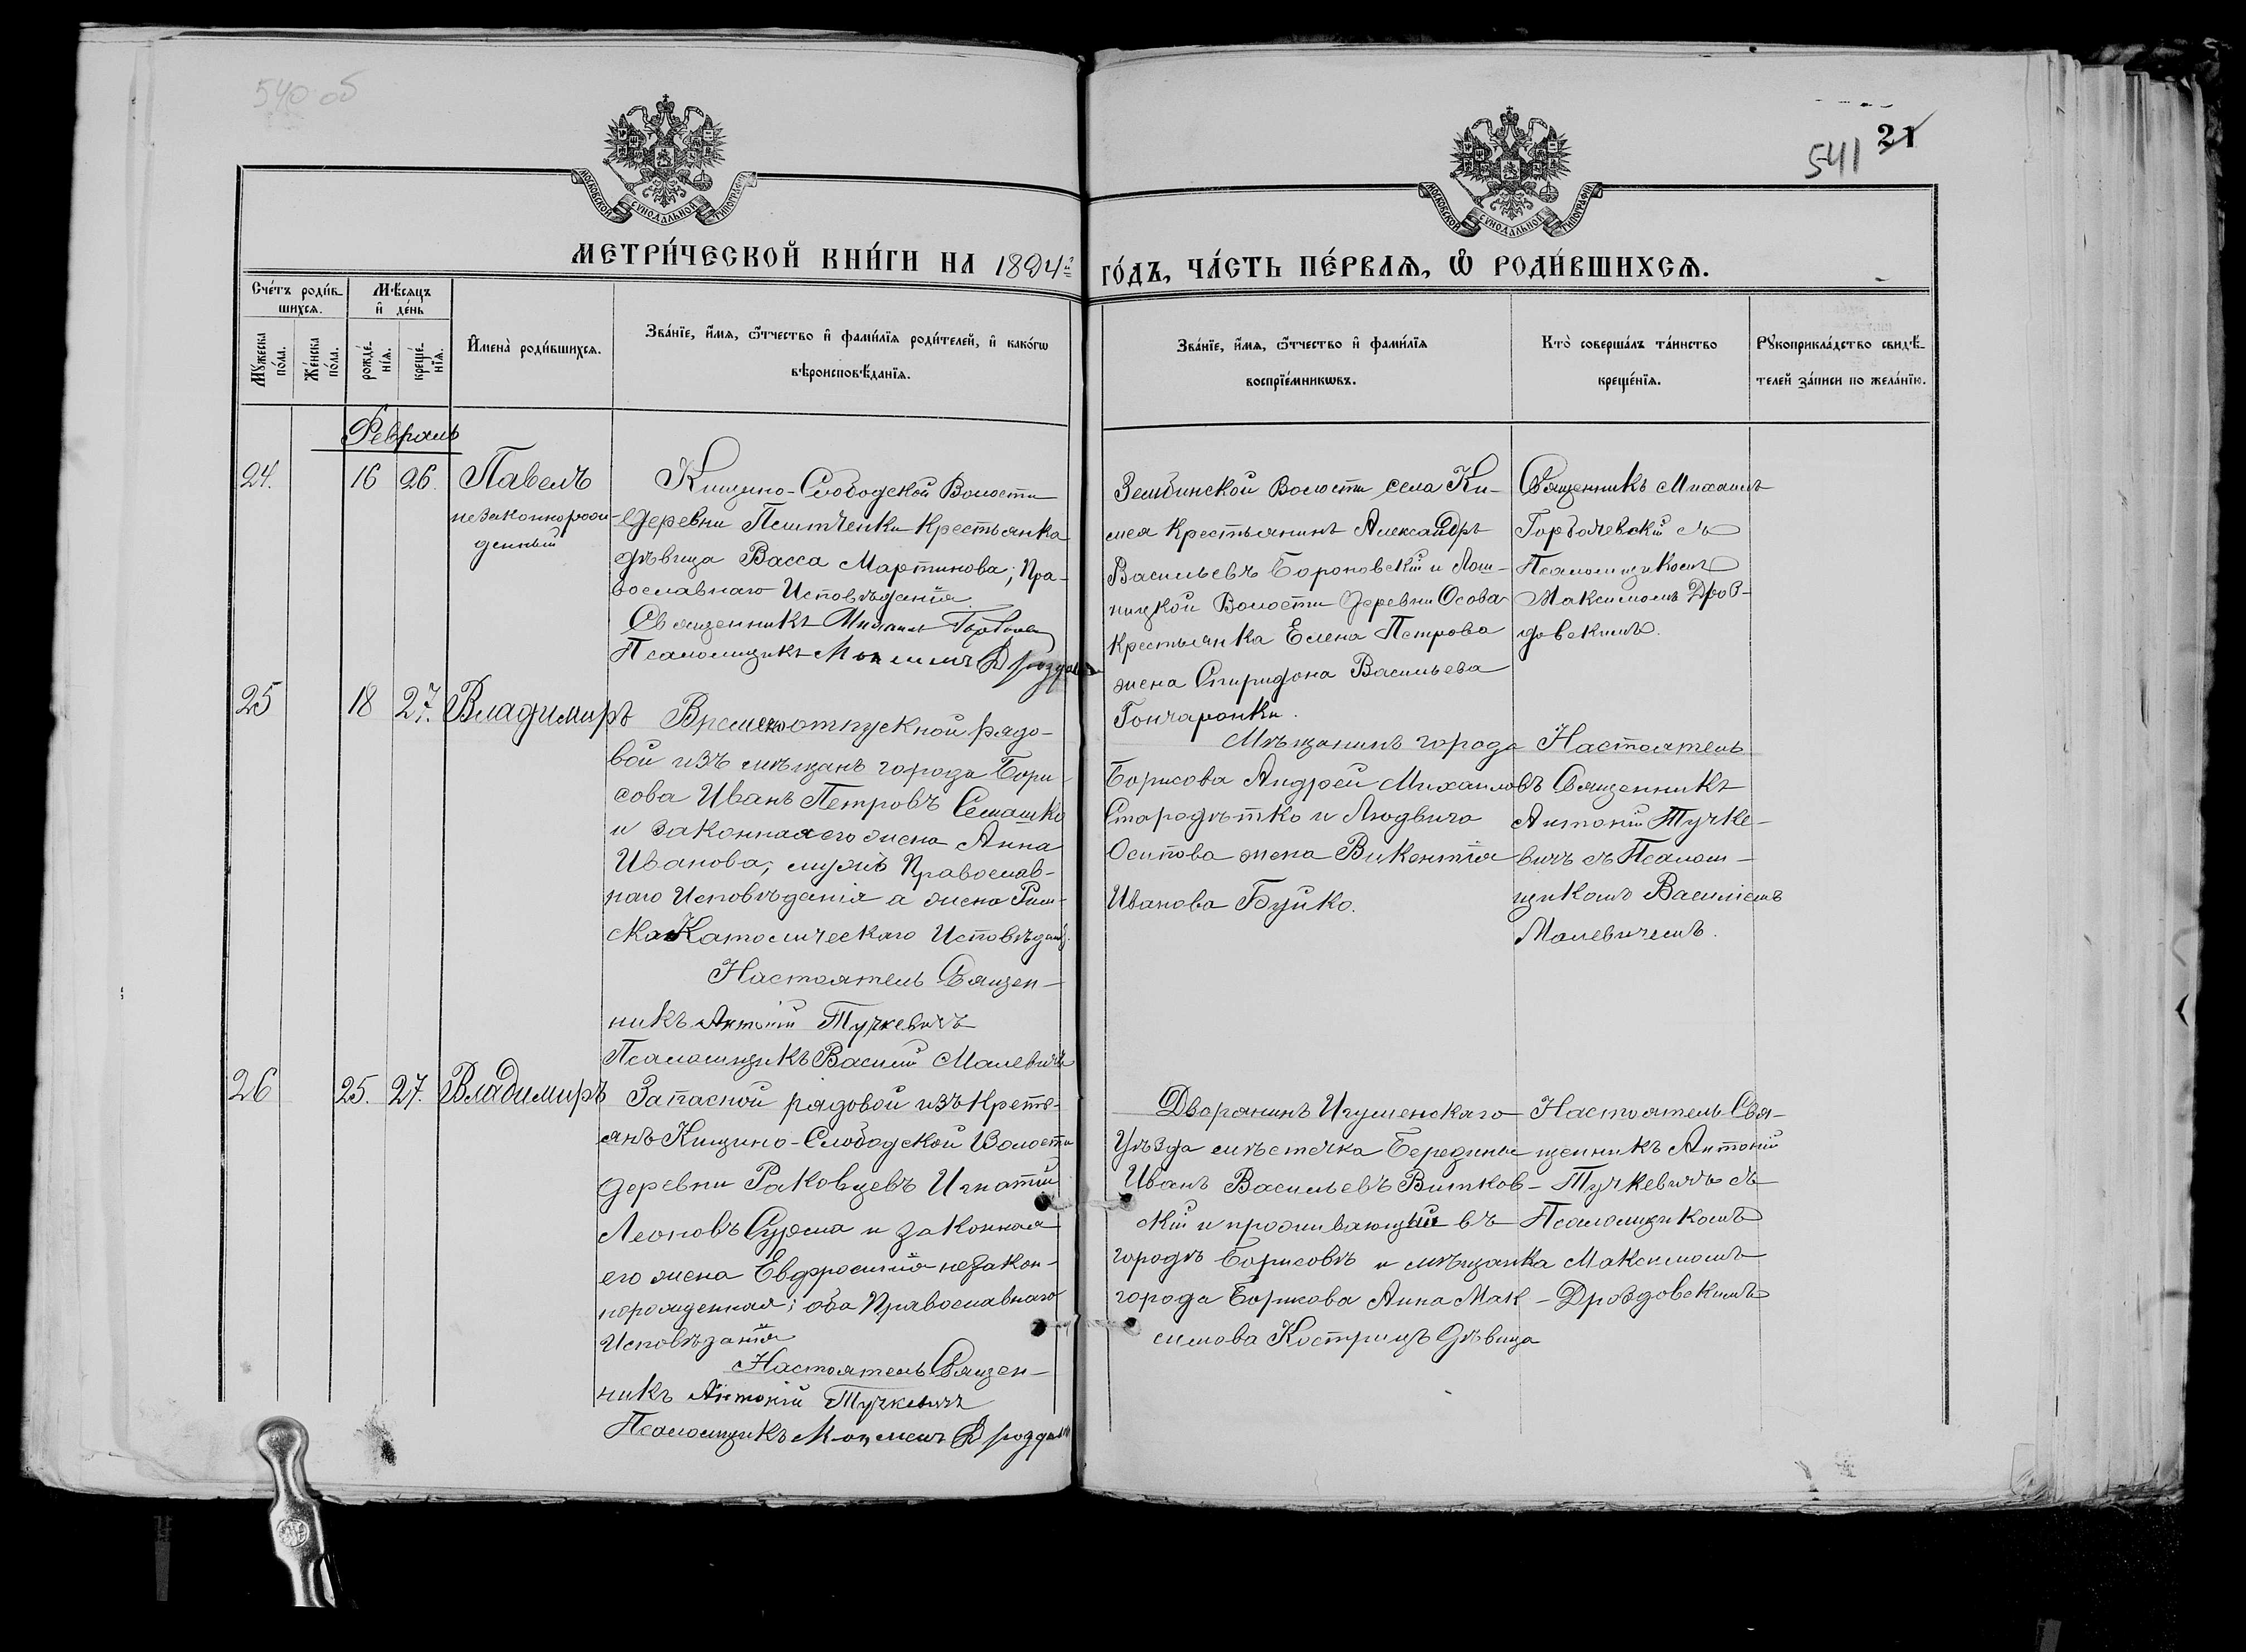 540 об
541 21
МОСКОВСКОЙ СѴНОДАЛЬНОЙ ТИПОГРАФІИ
МОСКОВСКОЙ СѴНОДАЛЬНОЙ ТИПОГРАФІИ
МЕТРИ́ЧЕСКОЙ КНИ́ГИ НА 1894й
ГО́ДЪ, ЧА́СТЬ ПЕ́РВАѦ, Ѡ҆ РОДИ́ВШИХСѦ.
Сче́тъ роди́в-
шихсѧ.
Мꙋжеска по́ла.
Же́нска по́ла.
Мѣ́сяцъ
и҆ де́нь
рожде́-
нїѧ.
креще́-
нїѧ.
И҆мена̀ роди́вшихсѧ.
Зва́нїе, и҆́мѧ, ѻ҆́тчество и҆ фами́лїѧ роди́телей, и҆ како́гѡ
вѣроисповѣ́данїѧ.
Зва́нїе, и҆́мѧ, ѻ҆́тчество и҆ фами́лїѧ
воспрїе́мникѡвъ.
Кто̀ соверша́лъ та́инство
креще́нїѧ.
Рꙋкоприкла́дство свидѣ́-
телей за́писи по жела́нїю.
Февраль
24. 16 26. Павелъ
незаконнорож-
денный
Кищино-Слободской Волости
деревни Крестьянка
дѣвица Васса Мартинова; Пра-
вославнаго Исповѣданія.
Священникъ Михаилъ
Псаломщикъ
Зембинской Волости села Ки-
мея Крестьянинъ Александръ
Васильевъ Бороновскій и Лош-
ницкой Волости деревни Осова
Крестьянка Елена Петрова
жена Спиридона Васильева
Гончаронки.
Священникъ Михаилъ
Горбачевскій съ
Псаломщикомъ
Максимомъ Дроз-
довскимъ.
25 18 27. Владимиръ
Временоотпускной рядо-
вой изъ мѣщанъ города Бори-
сова Иванъ Петровъ Семашко
и законная его жена Анна
Иванова; мужъ Православ-
наго Исповѣданія а жена Рим-
ско Католическаго Исповѣдан.
Настоятель Священ-
никъ Антоній Тучкевичъ
Псаломщикъ Василій Малевичъ
Мѣщанинъ города
Борисова Андрей Михаиловъ
Стародѣтко и Людвига
Осипова жена Викентія
Иванова Буйко.
Настоятель
Священникъ
Антоній Тучке-
вичъ съ Псалом-
щикомъ Василіемъ
Малевичемъ.
26 25. 27. Владимиръ
Запасной рядовой изъ Кресть-
янъ Кищино-Слободской Волости
деревни Раковцевъ Игнатій
Леоновъ Сузма и законная
его жена Евфросинія незакон-
норожденная; оба Православнаго
Исповѣданія
Настоятель Священ-
никъ Антоній Тучкевичъ
Псаломщикъ
Дворянинъ Игуменскаго
Уѣзда мѣстечка Березины
Иванъ Васильевъ Витков-
скій и проживающій въ
городѣ Борисовѣ и мѣщанка
города Борисова Анна Мак-
симова Кострицъ дѣвица
Настоятель Свя-
щенникъ Антоній
Тучкевичъ съ
Псаломщикомъ
Максимомъ
Дроздовскимъ